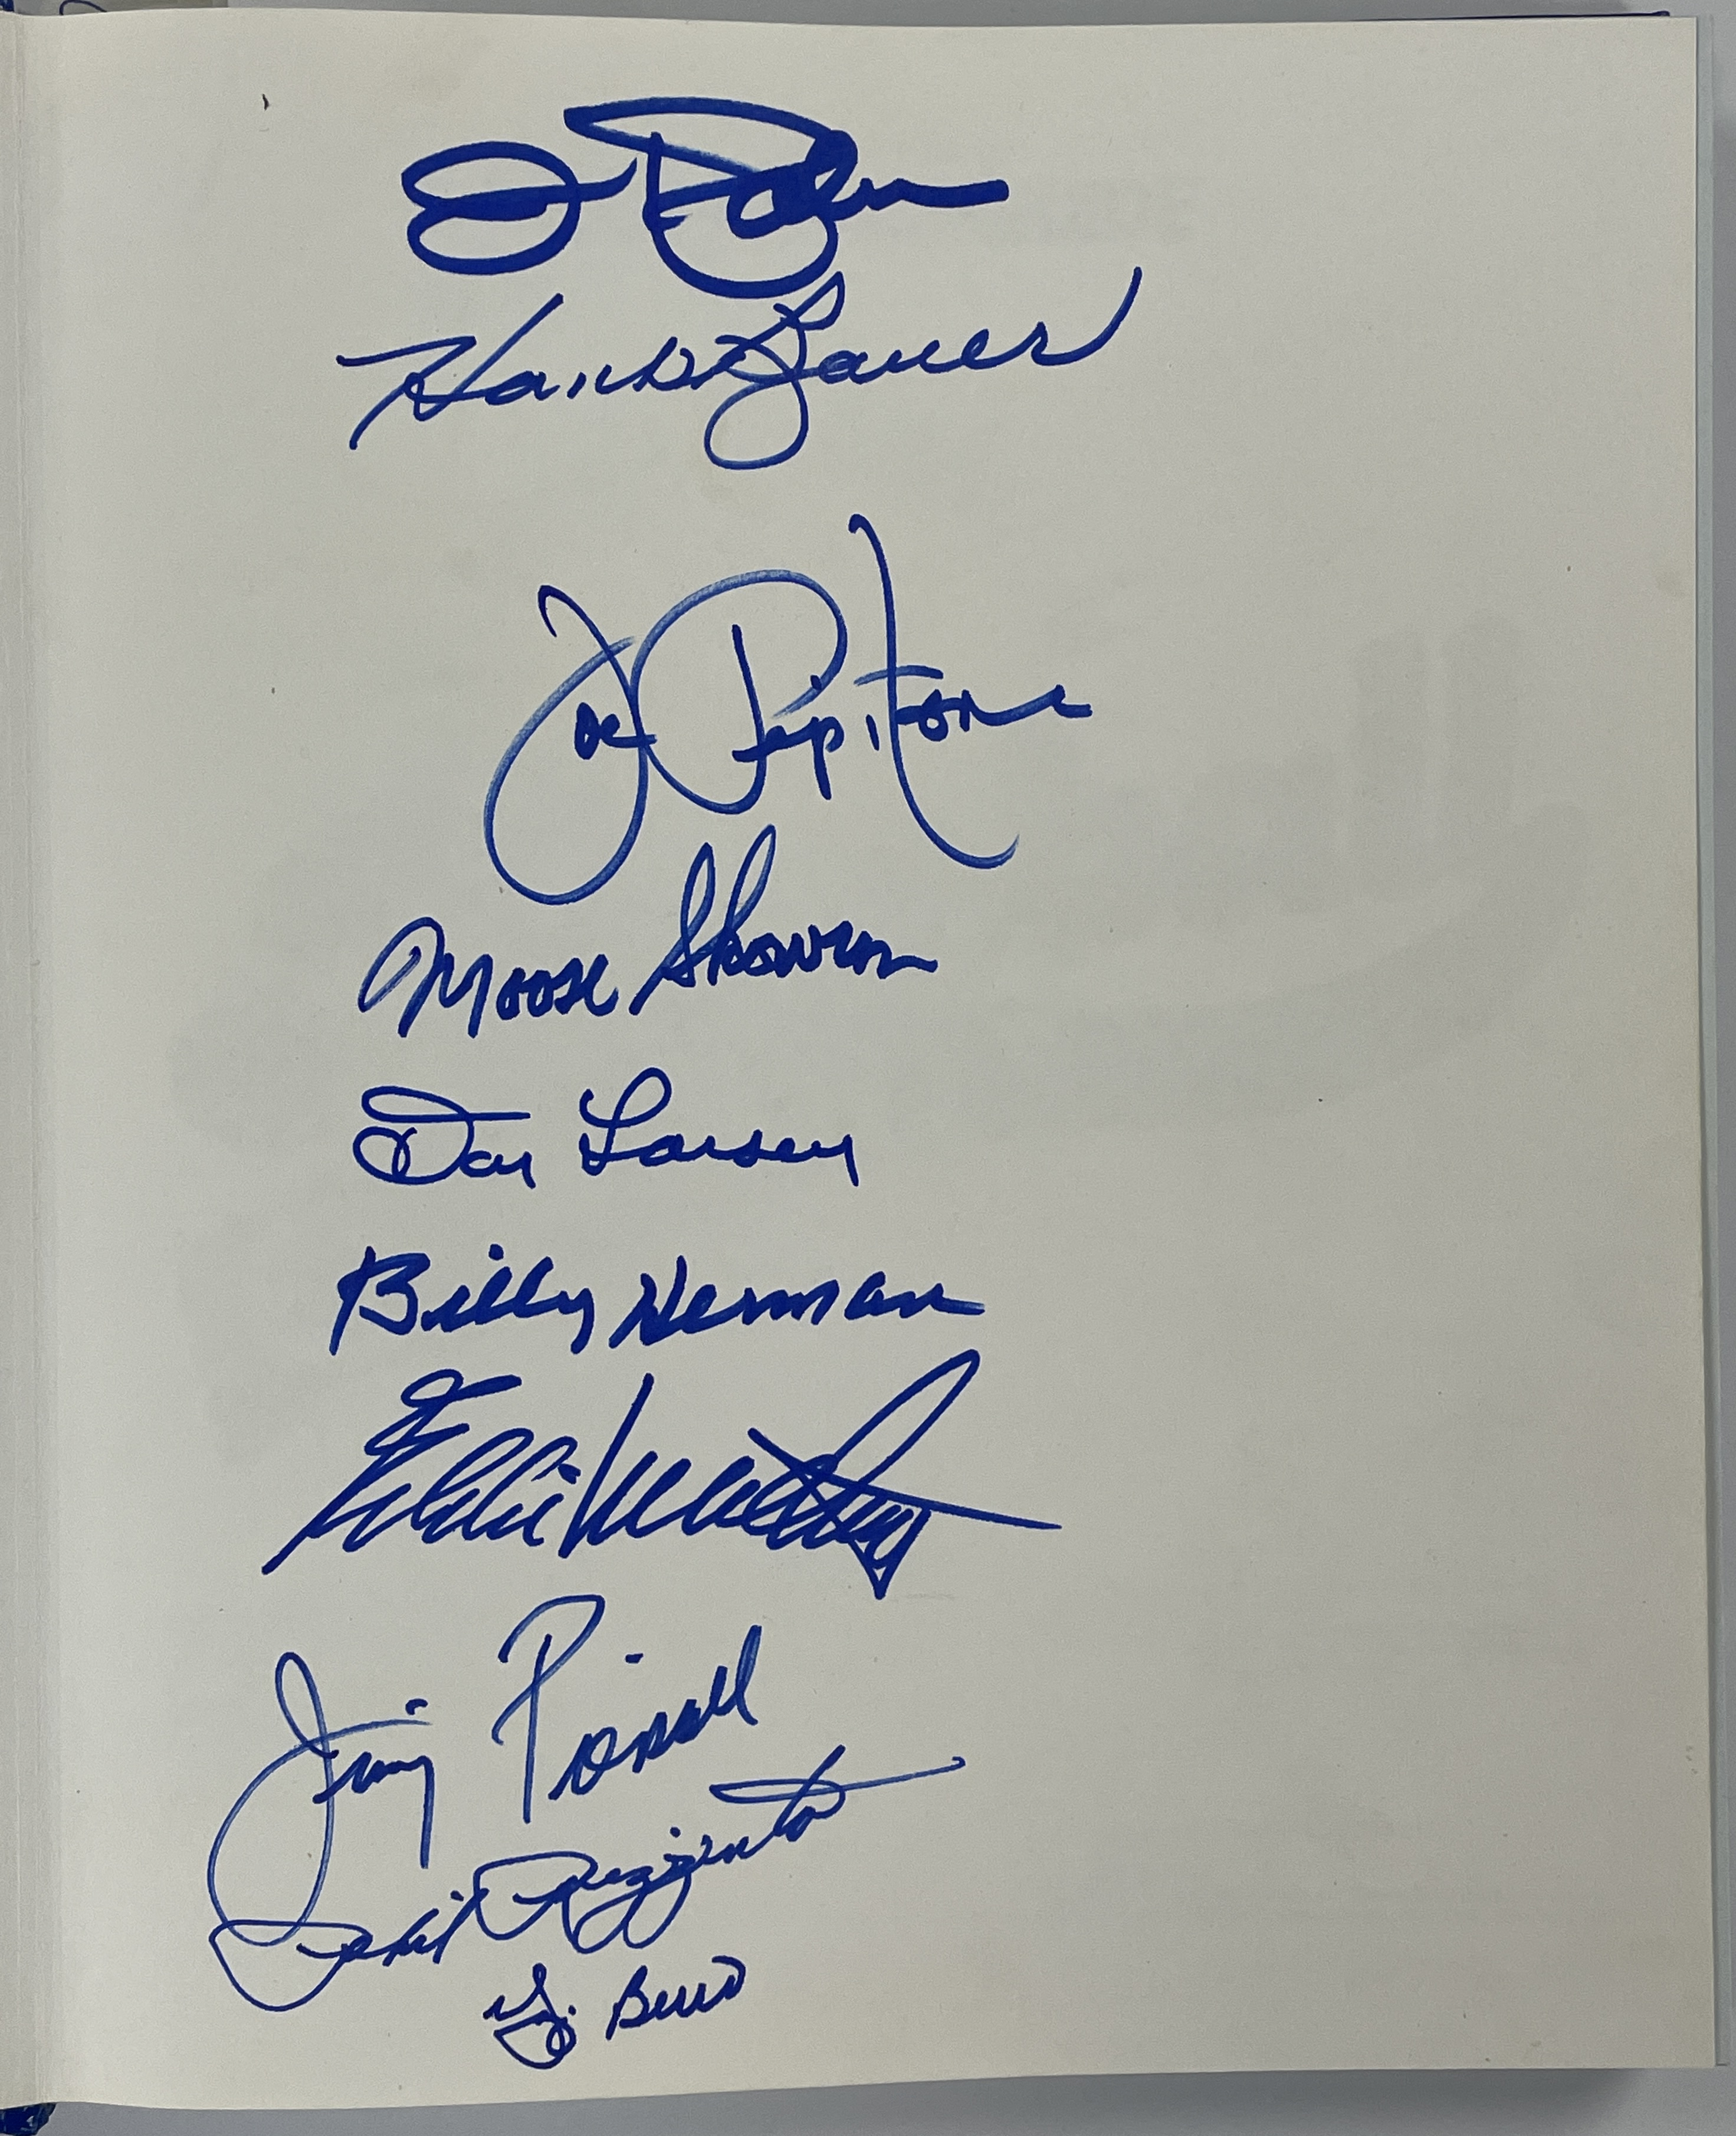 Hank Bauer
Joe Pepitone
Moose Skowron
Don Larsen
Billy Herman
Jimmy Piersall
Phil Rizzuto
Yogi Berra